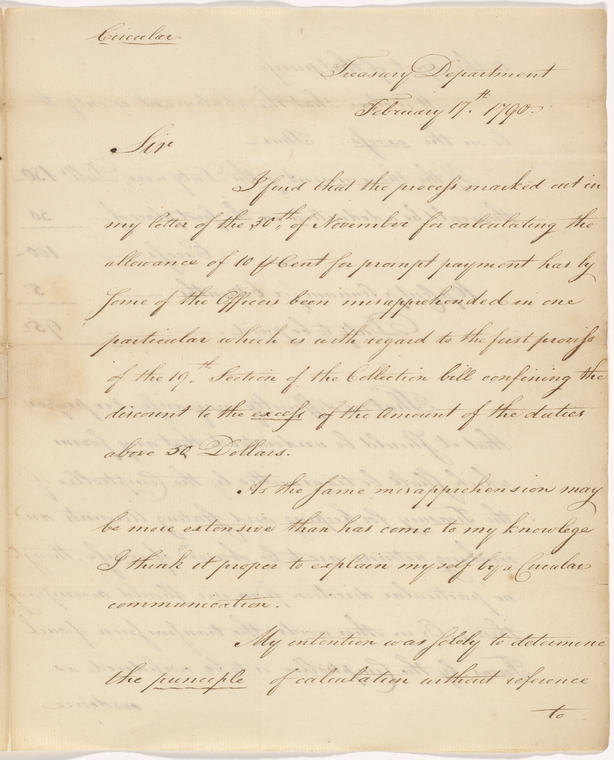 Circular
Treasury Department
February 17.th 1790.
Sir
I find that the process marked out in
my letter of the 30th. of November for calculating the
allowance of 10 ⅌ Cent for prompt payment has by
some of the Officers been misapprehended in one
particular which is with regard to the first proviso
of the 19.th Section of the Collection bill confining the
discount to the excess of the amount of the duties
above 50 Dollars.
As the same misapprehension may
be more extensive than has come to my knowlege
I think it proper to explain myself by a Circular
communication.
My intention was solely to determine
the principle of calculation without reference
to